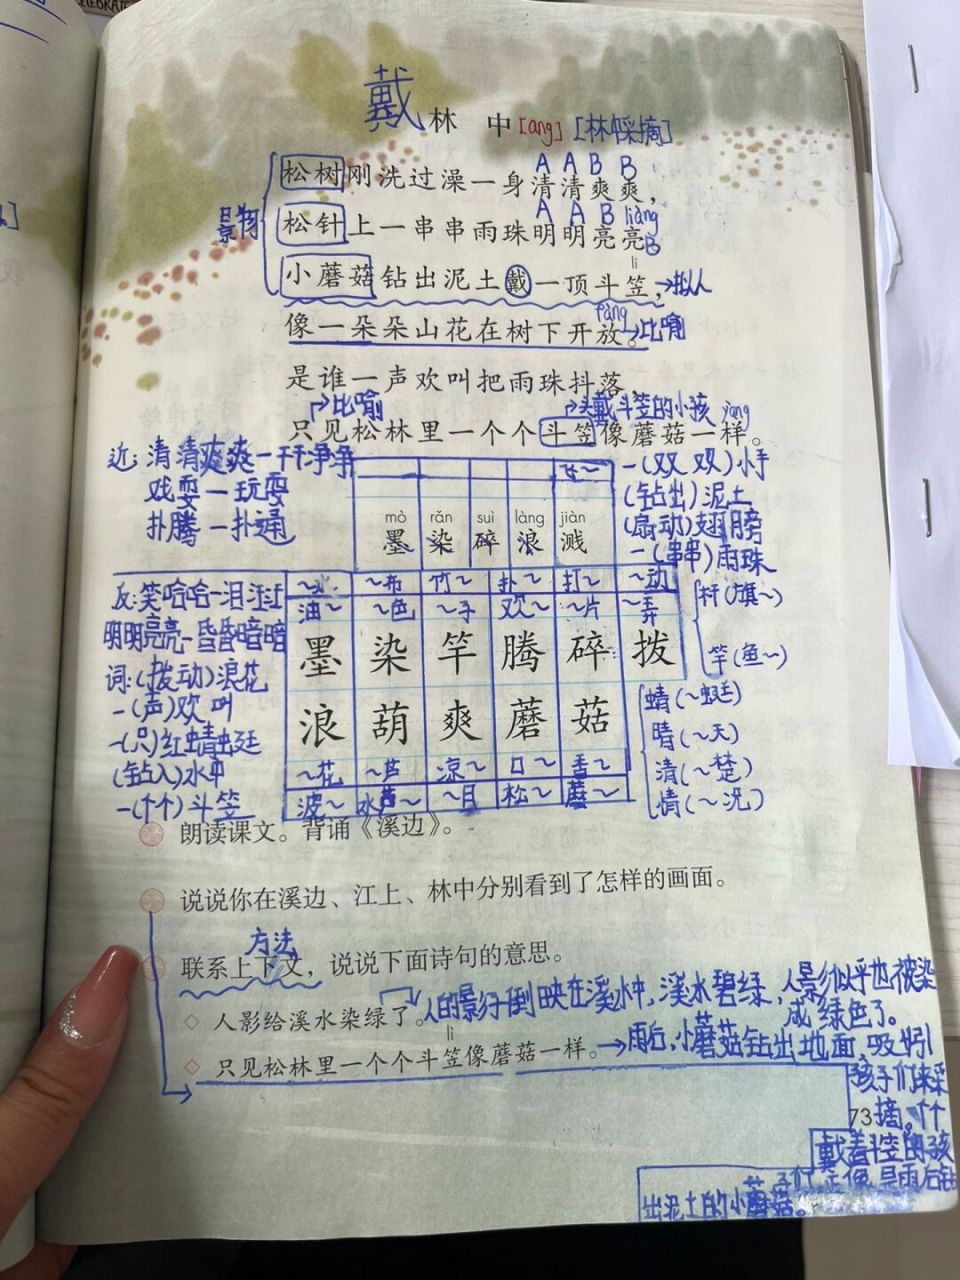 戴
林 中 [ang] [林中采摘]
A A B B
松树刚洗过澡一身清清爽爽，
A A B liàng B
景物
松针上一串串雨珠明明亮亮
lì
小蘑菇钻出泥土戴一顶斗笠，→拟人
fàng
像一朵朵山花在树下开放。→比喻
是谁一声欢叫把雨珠抖落，
比喻 →头戴斗笠的小孩 yàng
只见松林里一个个斗笠像蘑菇一样。
近：清清爽爽—干干净净
戏耍—玩耍
扑腾—扑通
一(双双)小手
(钻出)泥土
(扇动)翅膀
一(串串)雨珠
mò rǎn suì làng jiàn
墨 染 碎 浪 溅
反：笑哈哈—泪汪汪
明明亮亮—昏昏暗暗
词：(拨动)浪花
一(声)欢叫
一(只)红蜻蜓
(钻入)水中
一(个个)斗笠
~水 ~布 竹~ 扑~ 打~ ~动
油~ ~色 ~子 欢~ ~片 ~弄
墨 染 竿 腾 碎 拨
浪 葫 爽 蘑 菇
~花 ~芦 凉~ 口~ 香~
波~ ~月 松~ 蘑~
杆(旗~)
竿(鱼~)
蜻(~蜓)
晴(~天)
清(~楚)
情(~况)
朗读课文。背诵《溪边》。
说说你在溪边、江上、林中分别看到了怎样的画面。
方法
联系上下文，说说下面诗句的意思。
人影给溪水染绿了。
人的影子倒映在溪水中，溪水碧绿，人影似乎也被染
成绿色了。
lì
只见松林里一个个斗笠像蘑菇一样。→雨后，小蘑菇钻出地面，吸引
孩子们来采
73
摘。个个
戴着斗笠的孩
子们正像是雨后钻
出泥土的小蘑菇。